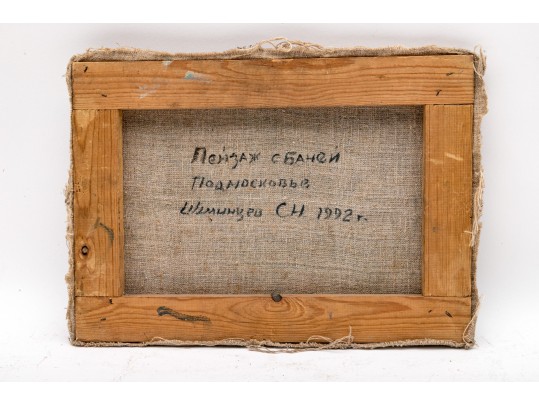 Пейзаж с баней
Подмосковье
СН 1992 г.